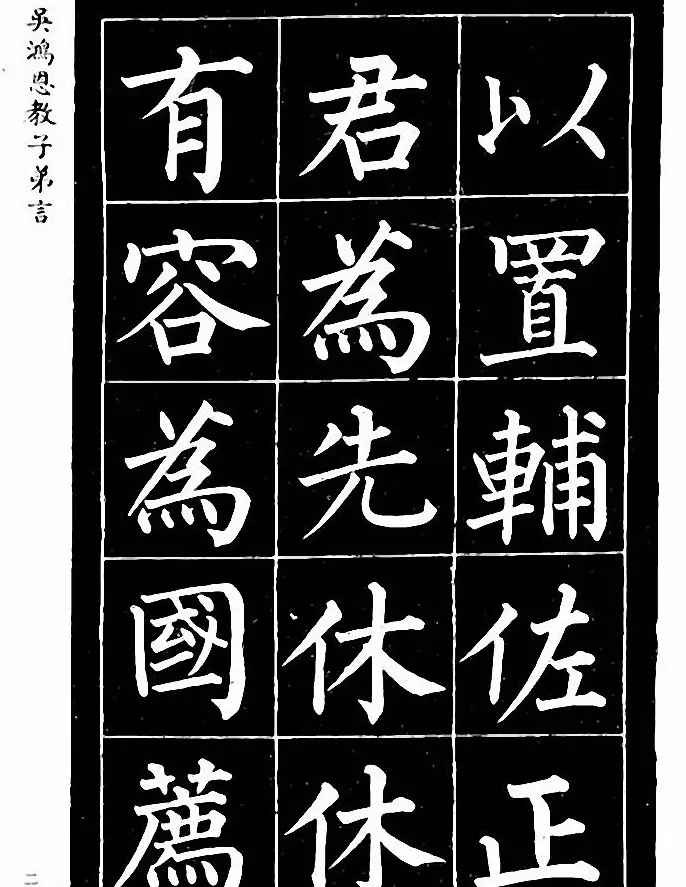 以置輔佐正
君為先休休
有容為國薦
吳鴻恩教子弟言
二